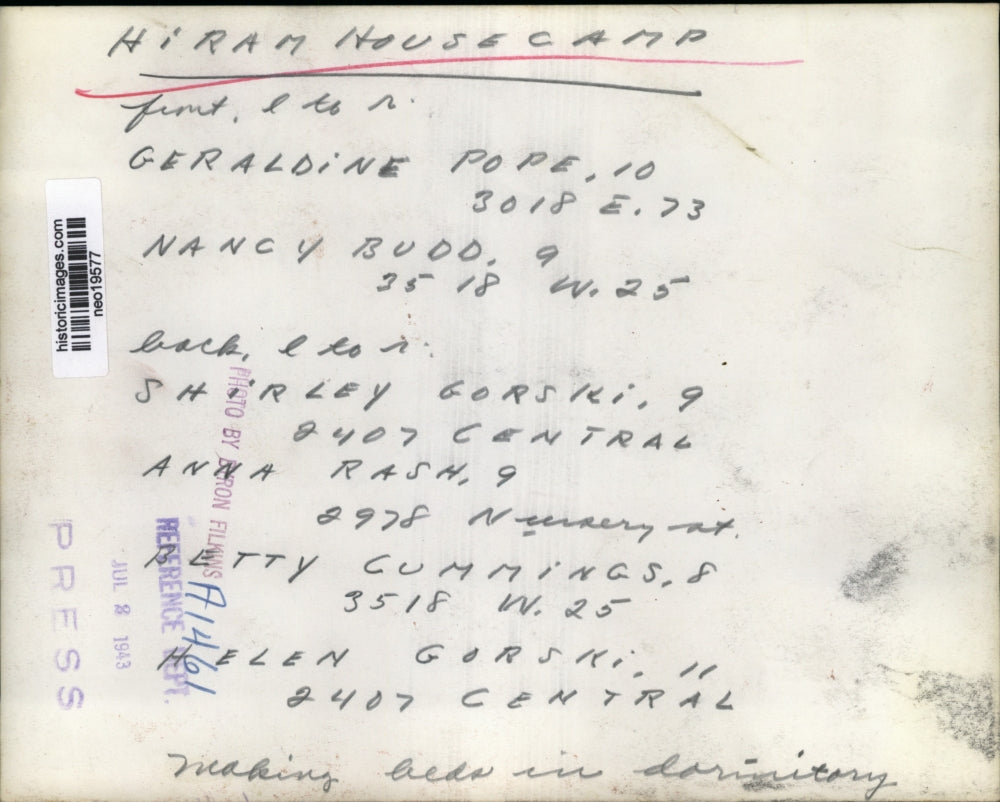 HiRAM HOUSE CAMP
front, l to r.
GERALDiNE POPE, 10
3018 E. 73
NANCY BUDD, 9
3518 W. 25
back, l to r.
SHiRLEY GORSKi, 9
2407 CENTRAL
ANNA RASH, 9
2978 Nursery st.
BETTY CUMMiNGS, 8
3518 W. 25
HELEN GORSKi, 11
2407 CENTRAL
making beds in dormitory
historicimages.com
neo19577
PHOTO BY BYRON FILKINS
A1461
REFERENCE DEPT.
JUL 2 1943
PRESS